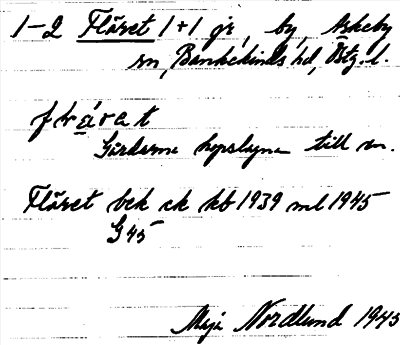 1-2 Fläret 1+1 gr, by, Askeby
sn, Bankekinds hd, Östg. l.
fråvat
Gårderna hopslagna till en.
Fläret bek ek kb 1939 ml 1945
G 45
Maja Nordlund 1945